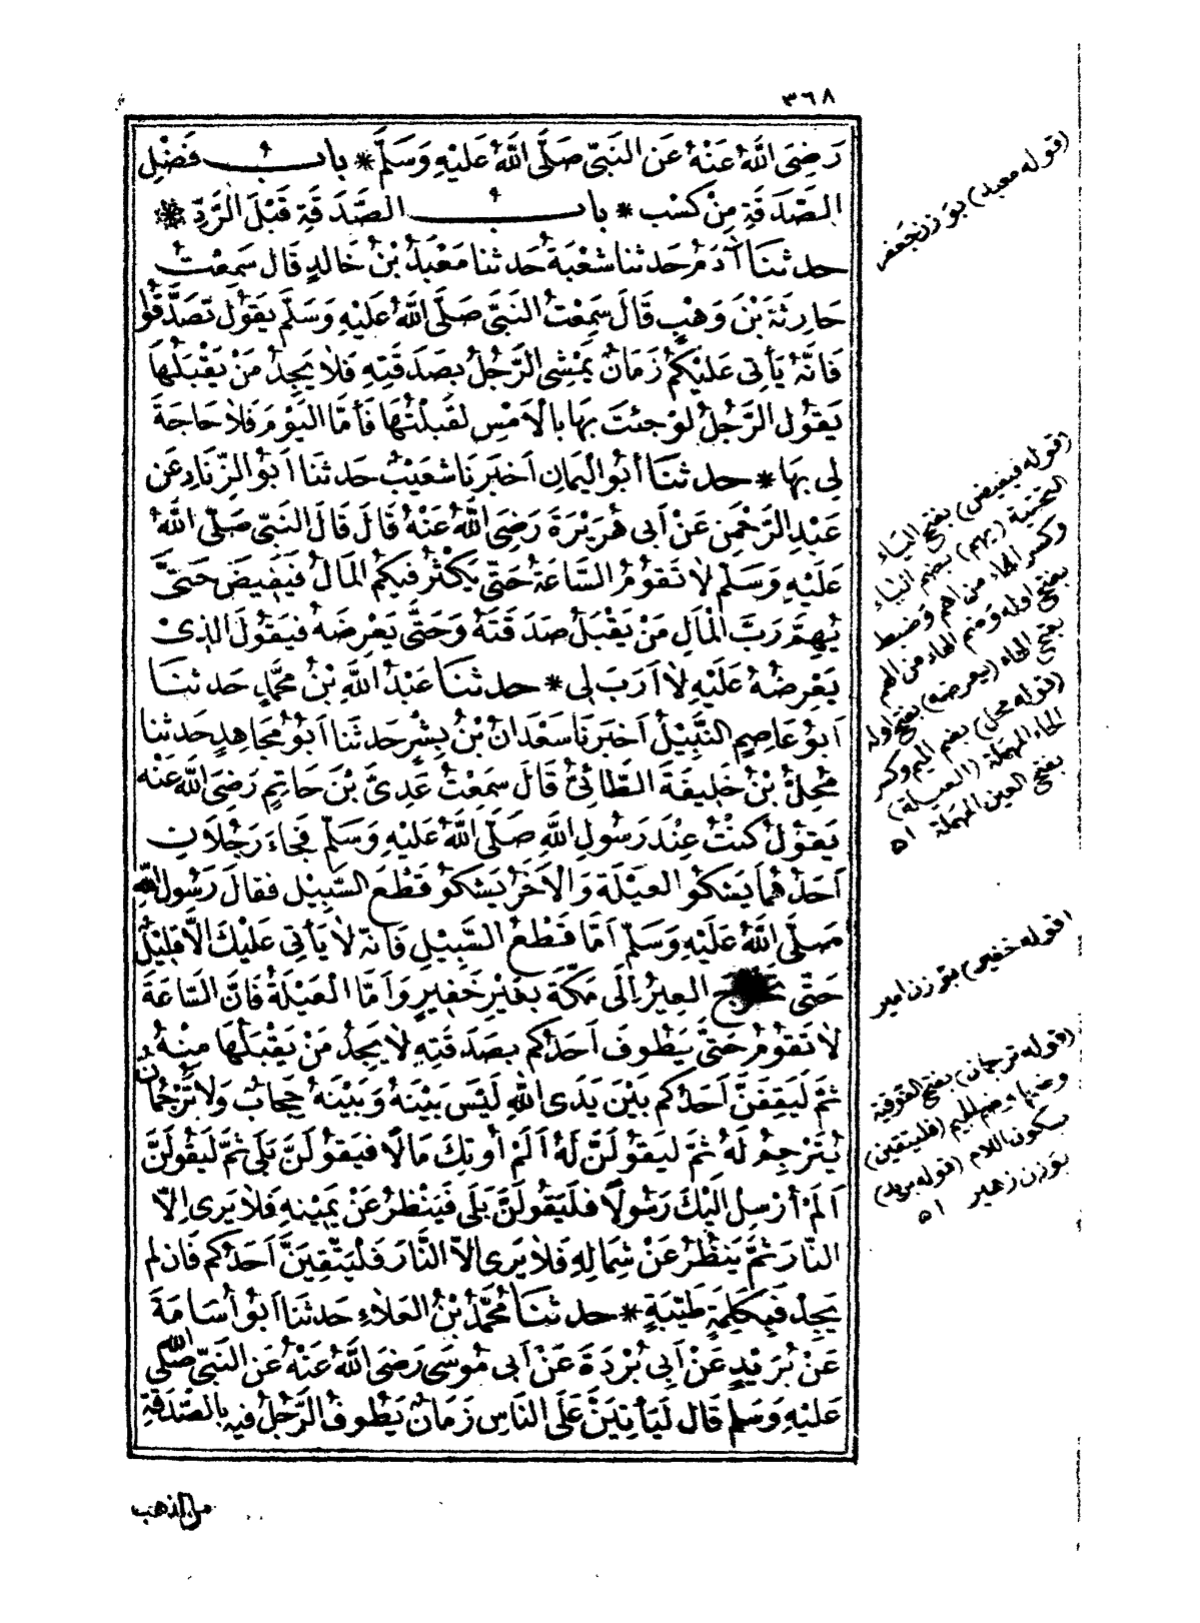 ٣٦٨
رَضِىَ اللَّهُ عَنْهُ عَنِ النَّبِىِّ صَلَّى اللَّهُ عَلَيْهِ وَسَلَّمَ * بابُ فَضْلِ
الصَّدَقَةِ مِنْ كَسْبٍ * بابُ الصَّدَقَةِ قَبْلَ الرَّدِّ *
حدثنا آدَمُ حَدثنا شُعْبَةُ حَدثنا مَعْبَدُ بْنُ خَالِدٍ قَالَ سَمِعْتُ
حَارِثَةَ بْنَ وَهْبٍ قَالَ سَمِعْتُ النَّبِىَّ صَلَّى اللَّهُ عَلَيْهِ وَسَلَّمَ يَقُولُ تَصَدَّقُوا
فَانَّهُ يَأْتِى عَلَيْكُمْ زَمَانٌ يَمْشِى الرَّجُلُ بِصَدَقَتِهِ فَلَا يَجِدُ مَنْ يَقْبَلُهَا
يَقُولُ الرَّجُلُ لَوْ جِئْتَ بِهَا بِالْاَمْسِ لَقَبِلْتُهَا فَأَمَّا الْيَوْمَ فَلَا حَاجَةَ
لِى بِهَا * حدثنا أَبُو الْيَمَانِ اَخبَرَنَا شُعَيْبٌ حَدثنا اَبُو الزِّنَادِ عَنْ
عَبْدِ الرَّحْمٰنِ عَنْ اَبِى هُرَيْرَةَ رَضِىَ اللَّهُ عَنْهُ قَالَ قَالَ النَّبِىُّ صَلَّى اللَّهُ
عَلَيْهِ وَسَلَّمَ لَا تَقُومُ السَّاعَةُ حَتَّى يَكْثُرَ فِيكُمُ الْمَالُ فَيَفِيضَ حَتَّى
يُهِمَّ رَبَّ الْمَالِ مَنْ يَقْبَلُ صَدَقَتَهُ وَحَتَّى يَعْرِضَهُ فَيَقُولَ الَّذِى
يَعْرِضُهُ عَلَيْهِ لَا اَرَبَ لِى * حدثنا عَبْدُ اللَّهِ بْنُ مُحَمَّدٍ حَدثنا
اَبُو عَاصِمٍ النَّبِيلُ اَخبَرَنَا سَعْدَانُ بْنُ بِشْرٍ حَدثنا اَبُو مُجَاهِدٍ حَدثنا
مُحِلُّ بْنُ خَلِيفَةَ الطَّائِىُّ قَالَ سَمِعْتُ عَدِىَّ بْنَ حَاتِمٍ رَضِىَ اللَّه عَنْه
يَقُولُ كُنْتُ عِنْدَ رَسُولِ اللَّهِ صَلَّى اللَّهُ عَلَيْهِ وَسَلَّمَ فَجَاءَ رَجُلَانِ
اَحَدُهُمَا يَشْكُو الْعَيْلَةَ وَالْاَخَرُ يَشْكُو قَطْعَ السَّبِيلِ فَقَالَ رَسُولُ اللَّهِ
صَلَّى اللَّهُ عَلَيْهِ وَسَلَّمَ اَمَّا قَطْعُ السَّبِيلِ فَانَّهُ لَا يَأْتِى عَلَيْكَ الَّا قَلِيلٌ
حَتَّى تَخْرُجَ الْعِيرُ اِلَى مَكَّةَ بِغَيْرِ خَفِيرٍ وَاَمَّا الْعَيْلَةُ فَانَّ السَّاعَةَ
لَا تَقُومُ حَتَّى يَطُوفَ اَحَدُكُمْ بِصَدَقَتِهِ لَا يَجِدُ مَنْ يَقْبَلُهَا مِنْهُ
ثُمَّ لَيَقِفَنَّ اَحَدُكُمْ بَيْنَ يَدَىِ اللَّهِ لَيْسَ بَيْنَهُ وَبَيْنَهُ حِجَابٌ وَلَا تَرْجُمَانٌ
يُتَرْجِمُ لَهُ ثُمَّ لَيَقُولَنَّ لَهُ اَلَمْ اُوتِكَ مَالًا فَيَقُولَنَّ بَلَى ثُمَّ لَيَقُولَنَّ
اَلَمْ اُرْسِلْ اِلَيْكَ رَسُولًا فَلَيَقُولَنَّ بَلَى فَيَنْظُرُ عَنْ يَمِينِهِ فَلَا يَرَى اِلَّا
النَّارَ ثُمَّ يَنْظُرُ عَنْ شِمَالِهِ فَلَا يَرَى اِلَّا النَّارَ فَلْيَتَّقِيَنَّ اَحَدُكُمْ فَاِنْ لَمْ
يَجِدْ فَبِكَلِمَةٍ طَيِّبَةٍ * حدثنا مُحَمَّدُ بْنُ الْعَلَاءِ حَدثنا اَبُو اُسَامَةَ
عَنْ بُرَيْدٍ عَنْ اَبِى بُرْدَةَ عَنْ اَبِى مُوسَى رَضِىَ اللَّهُ عَنْهُ عَنِ النَّبِىِّ صَلَّى اللَّه
عَلَيْهِ وَسَلَّمَ قَالَ لَيَأْتِيَنَّ عَلَى النَّاسِ زَمَانٌ يَطُوفُ الرَّجُلُ فِيهِ بِالصَّدَقَةِ
من الذهب
(قوله معبد) بوزن جعفر
(قوله فيفيض) بفتح الياء
التحتية (يهم) بضم الياء
وكسر الهاء من اهم وضبط
بفتح اوله وضم الهاء من الهم
بفتح الهاء (يعرضه) بفتح اوله
(قوله محل) بضم الميم وكسر
الحاء المهملة (العيلة)
بفتح العين المهملة اه
(قوله خفير) بوزن امير
(قوله ترجمان) بفتح الفوقية
وضمها وضم الجيم (فليتقين)
بسكون اللام (قوله بريد)
بوزن زهير اه